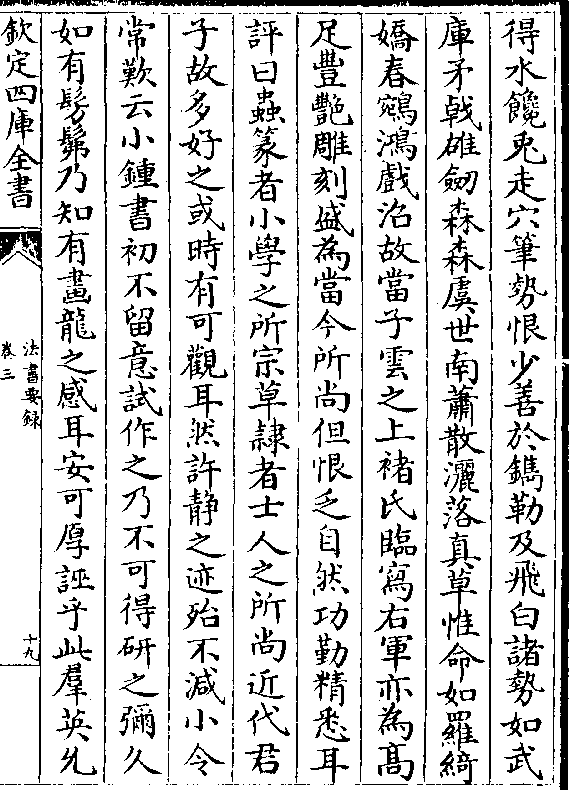 得水饞兎走穴筆勢恨少善於鐫勒及飛白諸勢如武
庫矛戟雄劒森森虞世南蕭散灑落真草惟命如羅綺
嬌春鵷鴻戲沼故當子雲之上褚氏臨寫右軍亦為高
足豐艷雕刻盛為當今所尚但恨乏自然功勤精悉耳
評曰蟲篆者小學之所宗草隸者士人之所尚近代君
子故多好之或時有可觀耳然許靜之迹殆不減小令
常歎云小鍾書初不留意試作之乃不可得研之彌久
如有髣髴乃知有畫龍之感耳安可厚誣乎此羣英允
欽定四庫全書
法書要録
卷三
十九